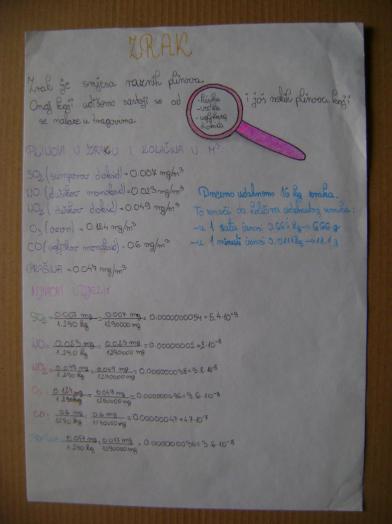 ZRAK
Zrak je smjesa raznih plinova.
Onaj koji udišemo sastoji se od
- kisika
- dušika
- ugljikova
i još nekih plinova koji
se nalaze u tragovima.
PLINOVI U ZRAKU I KOLIČINA U M³
SO₂ (sumporov dioksid) = 0.007 mg/m³
NO (dušikov monoksid) = 0.023 mg/m³
NO₂ (dušikov dioksid) = 0.049 mg/m³
O₃ (ozon) = 0.124 mg/m³
CO (ugljikov monoksid) = 0.6 mg/m³
PRAŠINA = 0.047 mg/m³
Dnevno udahnemo 16 kg zraka.
To znači da količina udahnutog zraka:
- u 1 satu iznosi 0.664 kg → 666 g
- u 1 minuti iznosi 0.011 kg → 11.1 g
MASENI UDJELI
SO₂ = 0.007 mg / 1.290 kg = 0.007 mg / 1290000 mg = 0.0000000054 = 5.4·10⁻⁹
NO = 0.023 mg / 1.290 kg = 0.023 mg / 1290000 mg = 0.00000002 = 2·10⁻⁸
NO₂ = 0.049 mg / 1.290 kg = 0.049 mg / 1290000 mg = 0.000000038 = 3.8·10⁻⁸
O₃ = 0.124 mg / 1.290 kg = 0.124 mg / 1290000 mg = 0.000000096 = 9.6·10⁻⁸
CO = 0.6 mg / 1290 kg = 0.6 mg / 1290000 mg = 0.00000047 = 4.7·10⁻⁷
0.047 mg / 1.290 kg = 0.047 mg / 1290000 mg = 0.000000036 = 3.6·10⁻⁸